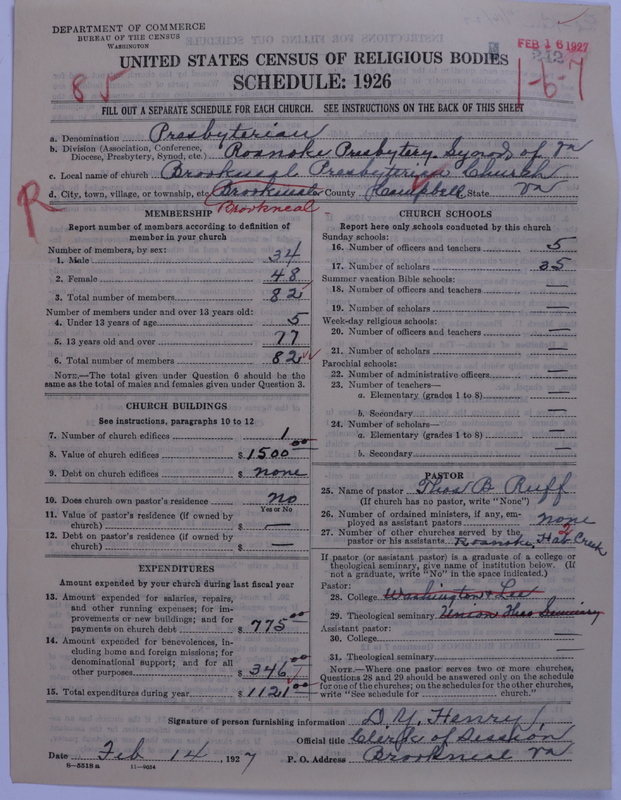 DEPARTMENT OF COMMERCE
BUREAU OF THE CENSUS
WASHINGTON
FEB 16 1927
242
1-6-7
85
UNITED STATES CENSUS OF RELIGIOUS BODIES
SCHEDULE: 1926
FILL OUT A SEPARATE SCHEDULE FOR EACH CHURCH. SEE INSTRUCTIONS ON THE BACK OF THIS SHEET
a. Denomination Presbyterian
b. Division (Association, Conference, Diocese, Presbytery, Synod, etc.) Roanoke Presbytery Synod of Va
c. Local name of church Brookneal Presbyterian Church
d. City, town, village, or township, etc. County Campbell State Va
R
Brookneal
MEMBERSHIP
Report number of members according to definition of
member in your church
Number of members, by sex:
1. Male 34
2. Female 48
3. Total number of members 82
Number of members under and over 13 years old:
4. Under 13 years of age 5
5. 13 years old and over 77
6. Total number of members 82
NOTE.—The total given under Question 6 should be the
same as the total of males and females given under Question 3.
CHURCH BUILDINGS
See instructions, paragraphs 10 to 12
7. Number of church edifices 1
8. Value of church edifices $ 1500 00
9. Debt on church edifices $ none
10. Does church own pastor's residence no
Yes or No
11. Value of pastor's residence (if owned by
church) $ —
12. Debt on pastor's residence (if owned by
church) $ —
EXPENDITURES
Amount expended by your church during last fiscal year
13. Amount expended for salaries, repairs,
and other running expenses; for im-
provements or new buildings; and for
payments on church debt $ 775 00
14. Amount expended for benevolences, in-
cluding home and foreign missions; for
denominational support; and for all
other purposes $ 346
15. Total expenditures during year $ 1121 00
CHURCH SCHOOLS
Report here only schools conducted by this church
Sunday schools:
16. Number of officers and teachers 5
17. Number of scholars 35
Summer vacation Bible schools:
18. Number of officers and teachers —
19. Number of scholars —
Week-day religious schools:
20. Number of officers and teachers —
21. Number of scholars —
Parochial schools:
22. Number of administrative officers —
23. Number of teachers—
a. Elementary (grades 1 to 8) —
b. Secondary —
24. Number of scholars—
a. Elementary (grades 1 to 8) —
b. Secondary —
PASTOR
25. Name of pastor Thos B Ruff
(If church has no pastor, write "None")
26. Number of ordained ministers, if any, em-
ployed as assistant pastors none
27. Number of other churches served by the 2
pastor or his assistants Roanoke, Hat Creek
If pastor (or assistant pastor) is a graduate of a college or
theological seminary, give name of institution below. (If
not a graduate, write "No" in the space indicated.)
Pastor:
28. College Washington & Lee
29. Theological seminary Union Theo Seminary
Assistant pastor:
30. College
31. Theological seminary
NOTE.—Where one pastor serves two or more churches,
Questions 28 and 29 should be answered only on the schedule
for one of the churches; on the schedules for the other churches,
write "See schedule for church."
Signature of person furnishing information D. Y. Henry
Official title Clerk of Session
Date Feb 14, 1927 P. O. Address Brookneal Va
8—5518 a 11—9054